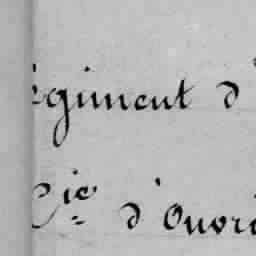 égiment d'
Cie d'Ouvri